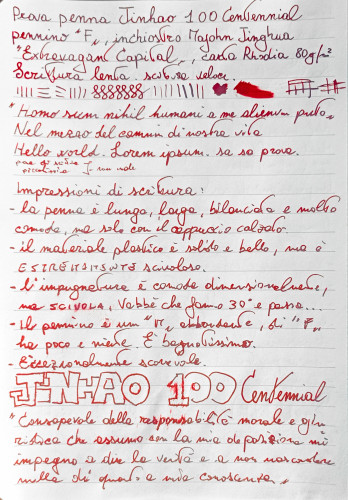 Prova penna Jinhao 100 Centennial
pennino "F", inchiostro Majohn Jinghua
"Extravagant Capital", carta Rhodia 80g/m²
Scrittura lenta. scrittura veloce.
"Homo sum nihil humani a me alienum puto"
Nel mezzo del cammin di nostra vita
Hello world. Lorem ipsum. sa sa prova.
piccolina
non vale
Impressioni di scrittura:
- la penna è lunga, larga, bilanciata e molto
comoda, ma solo con il cappuccio calzato.
- il materiale plastico è solido e bello, ma è
ESTREMAMENTE scivoloso.
- l'impugnatura è comoda dimensionalmente,
ma SCIVOLA. Vabbè che fanno 30° e passa...
- Il pennino è un "M" abbondante, di "F"
ha poco e niente. È bagnatissimo.
- Eccezionalmente scorrevole.
JINHAO 100 Centennial
"Consapevole della responsabilità morale e giu
ridica che assumo con la mia deposizione mi
impegno a dire la verità e a non nascondere
nulla di quanto a mia conoscenza"